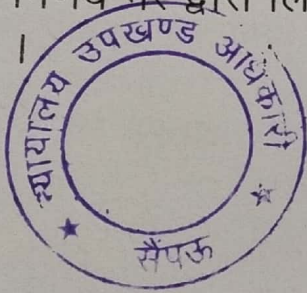 न्यायालय उपखण्ड अधिकारी
सैंपऊ